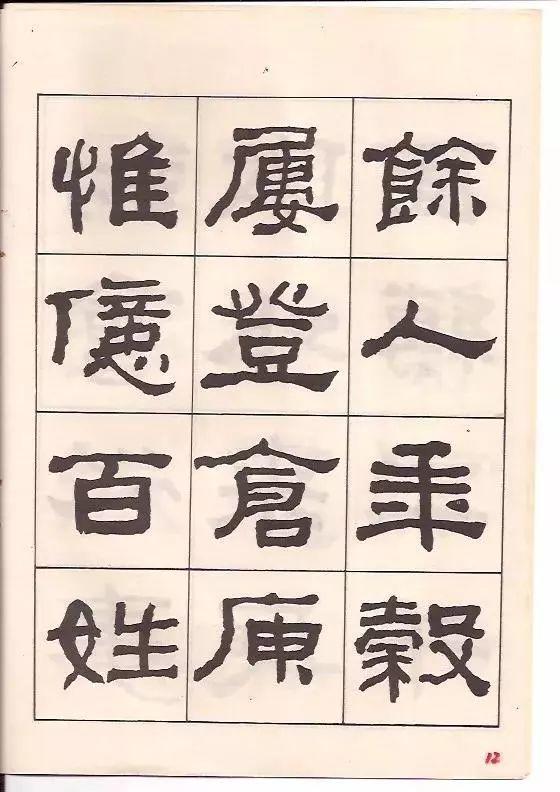 餘人年穀
屢登倉庾
惟億百姓
12